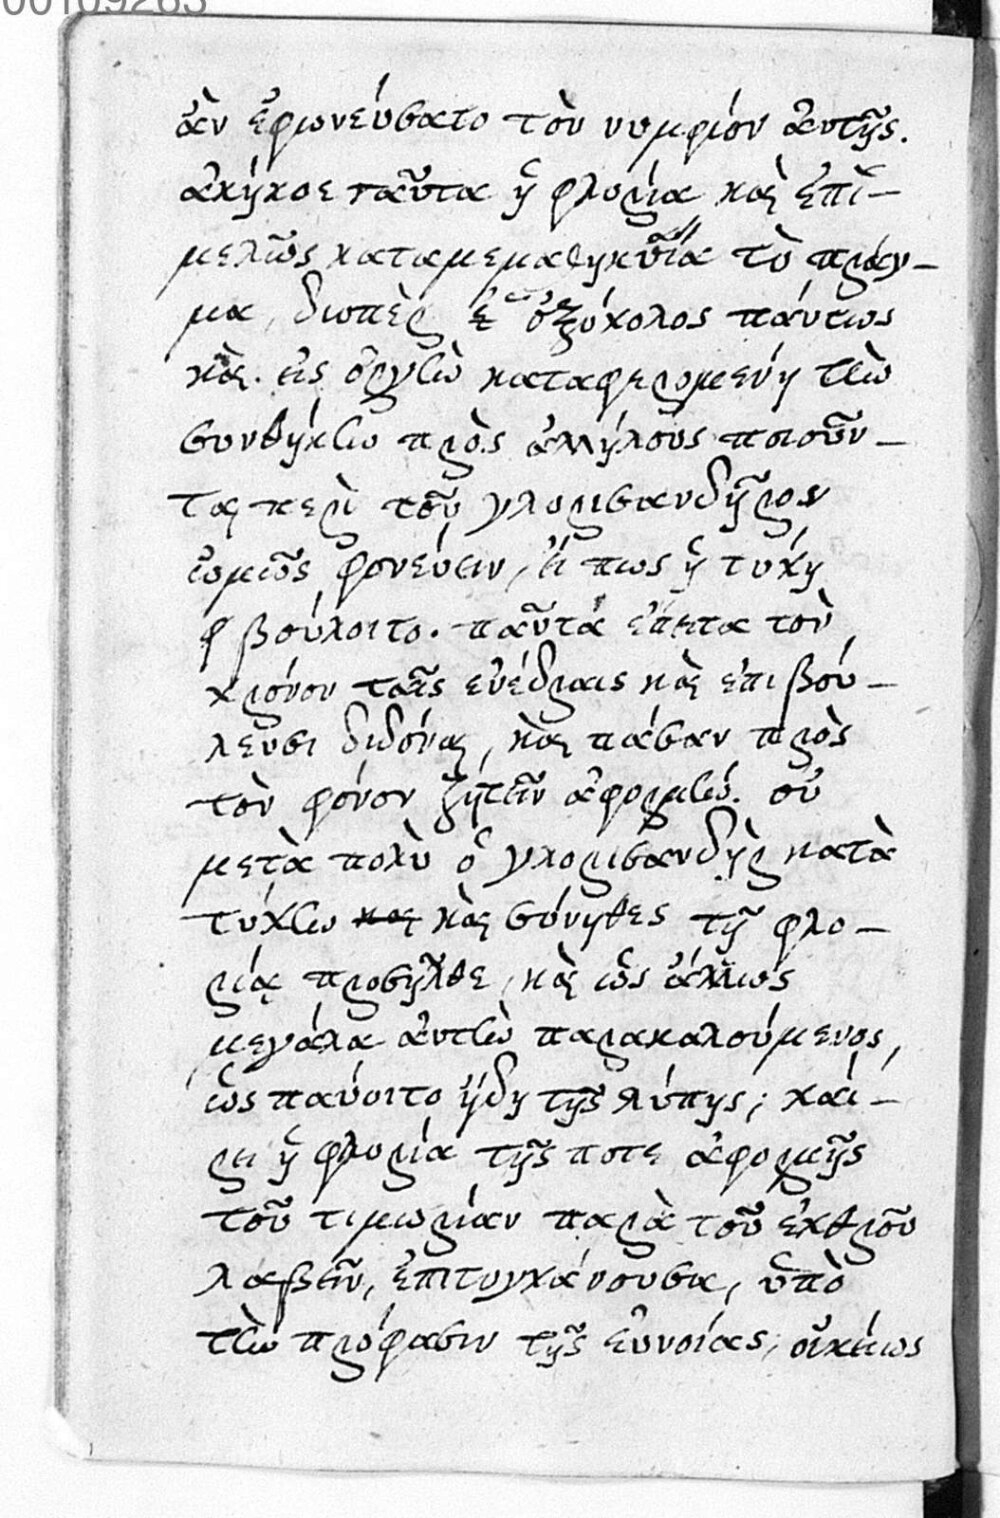 00109263
ἂν ἐφωνεύσατο τὸν νυμφίον ἀυτῆς.
ἀκήκοε ταῦτα ἡ φλορία καὶ ἐπὶ-
μελῶς καταμεμαθηκυῖα τὸ πράγ-
μα, διωπὲρ ὀξύχολος πάντως
καὶ. εἰς ὀργὴν καταφερομένη τὴν
συνθήκην πρὸς ἀλλήλους ποιοῦν-
ται περὶ τοῦ γλορισανδῆρον
ὠμῶς φονεύειν, ἐί πως ἡ τυχή
βούλοιτο. παῦτα ἐπειτα τὸν
χρόνον ταῖς ἐνέδραις καὶ ἐπιβού-
λευσι διδόναι, καὶ πάσαν πρὸς
τὸν φόνον ζητεῖν ἀφορμήν. οὐ
μετὰ πολὺ ὁ γλορισανδὴρ κατὰ
τύχην καὶ καὶ σύνηθες τῇ φλο-
ρίᾳ προσῆλθε, καὶ ὡς ἄλλως
μεγάλα ἀυτὴν παρακαλούμενος,
ὡς παύοιτο ἤδη τῆς λύπης; χαί-
ρει ἡ φλορία τῆς ποτε ἀφορμῆς
τοῦ τιμωρίαν παρὰ τοῦ ἐχθροῦ
λαβεῖν, ἐπιτυγχάνουσα, ὑπὸ
τὴν πρόφασιν τῆς ἐυνοίας, οἰκείως